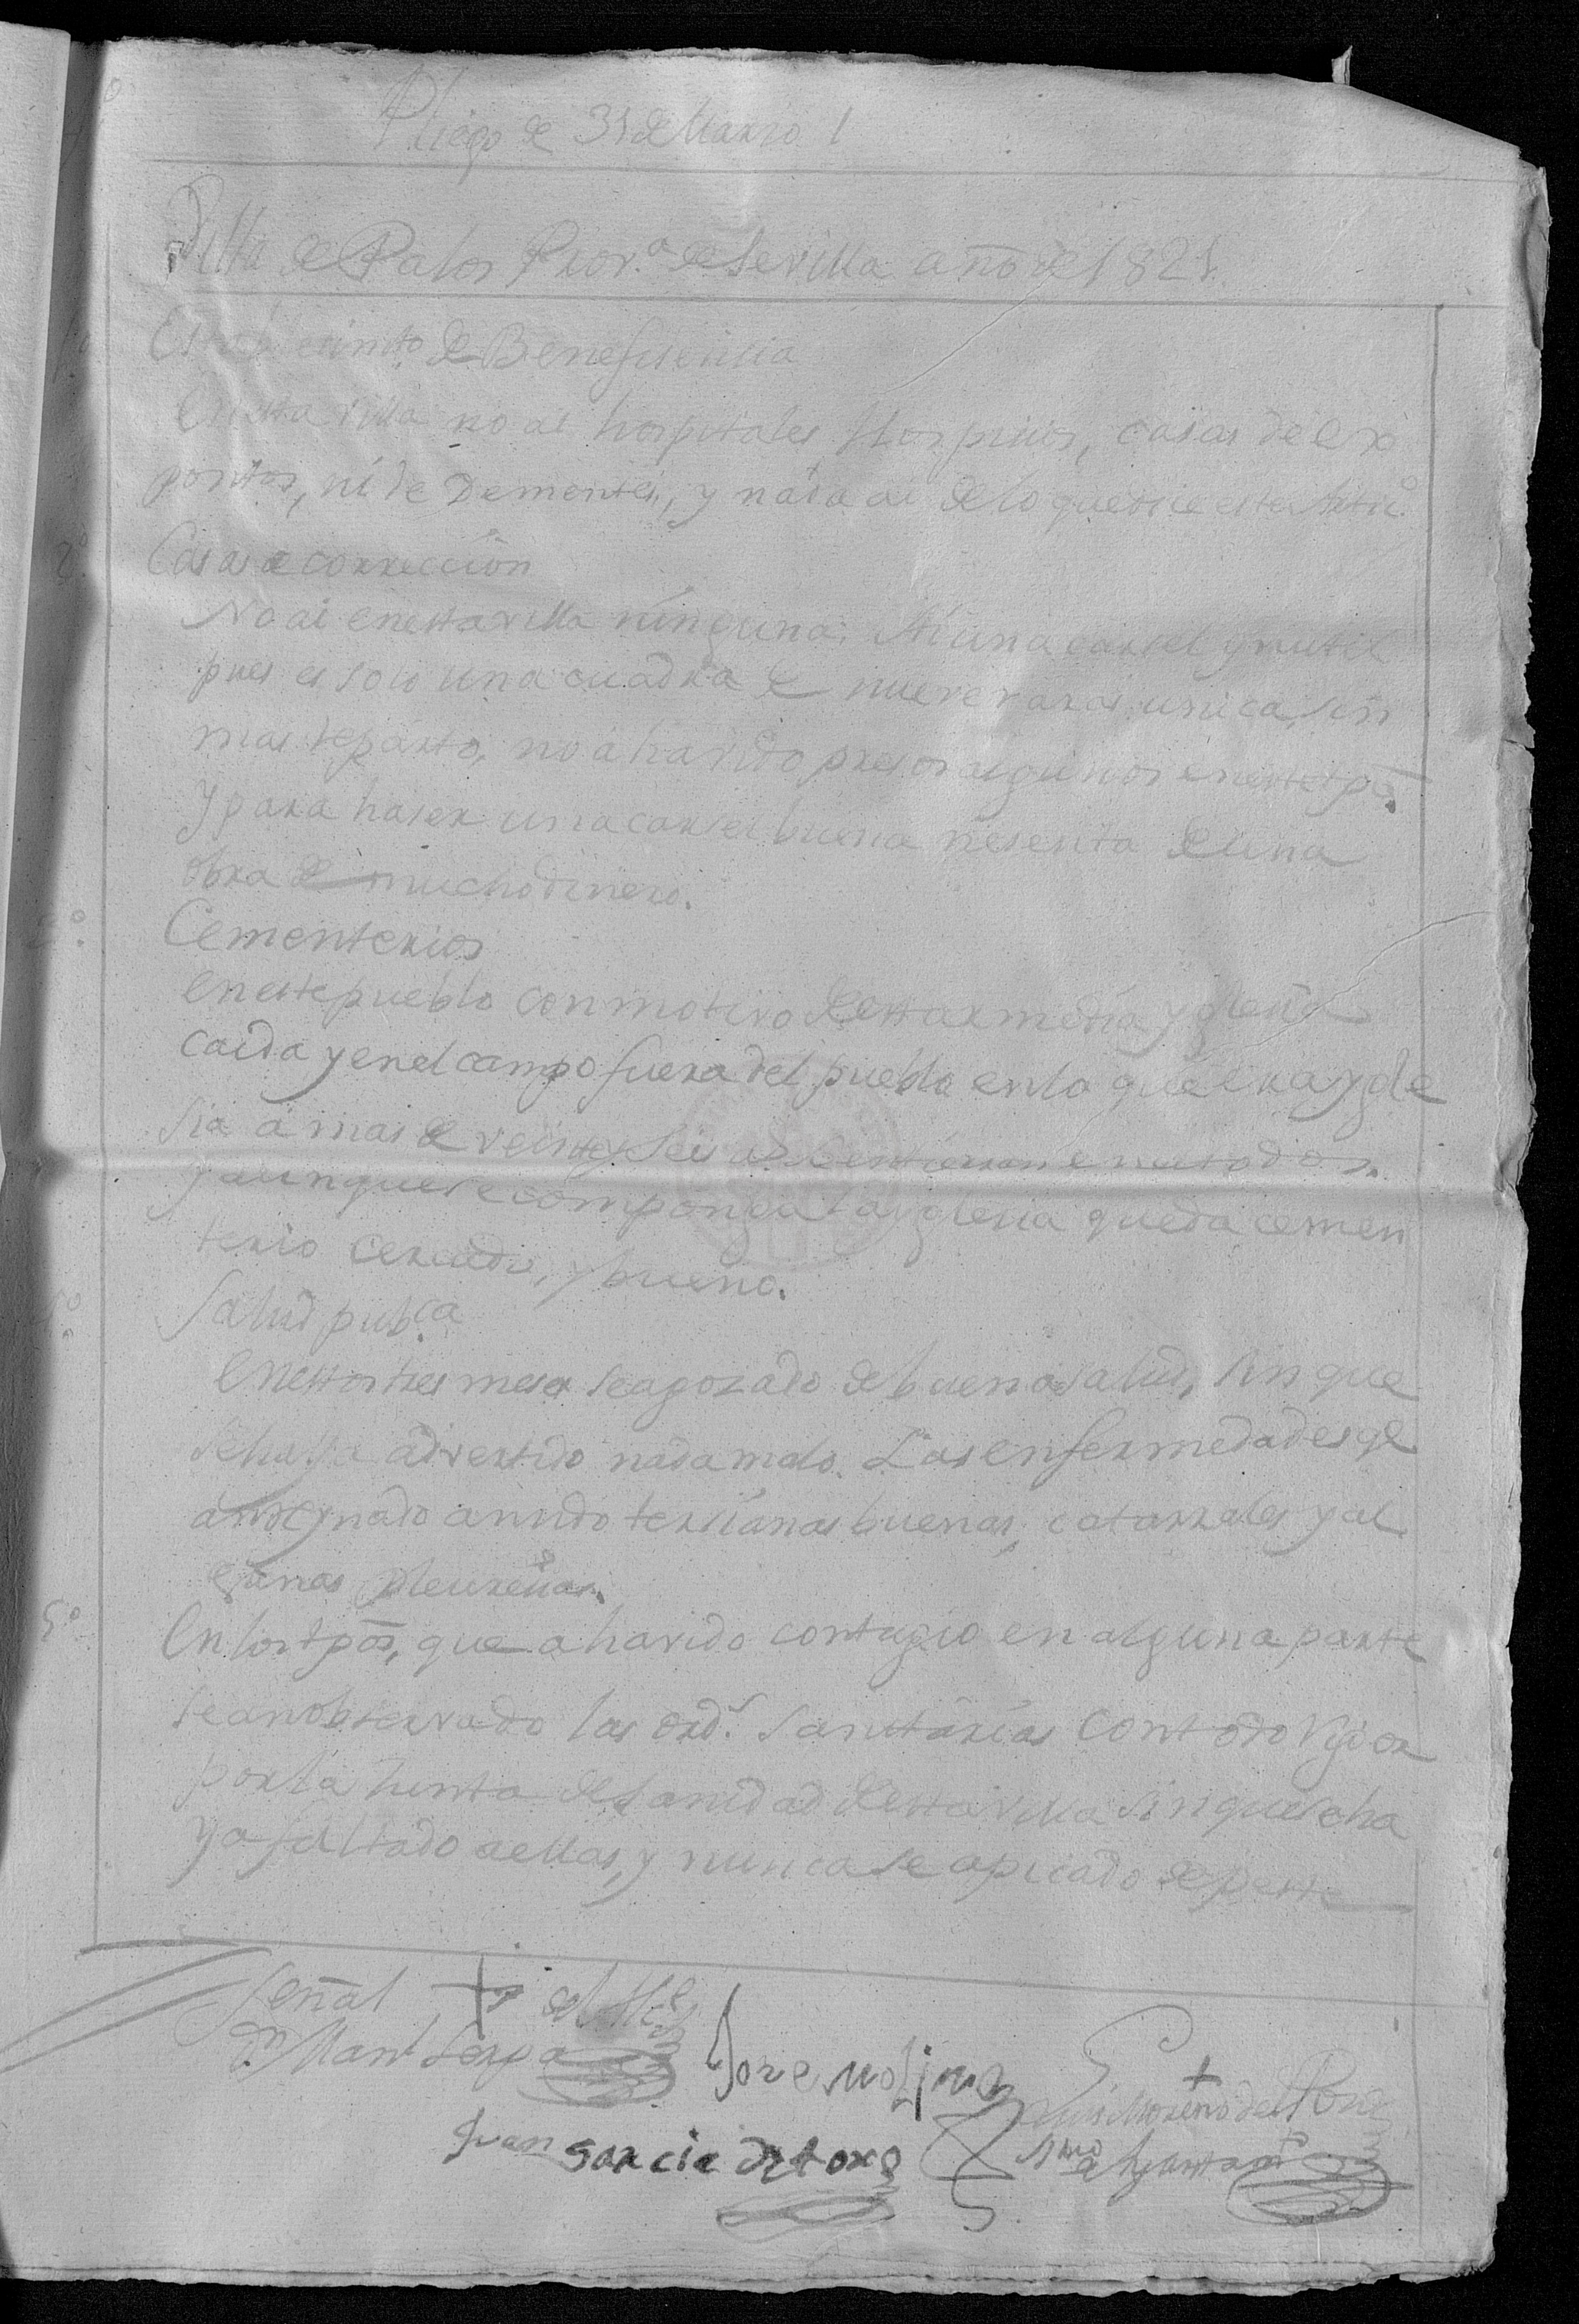 Pliego de 31 de Marzo
Villa de Palos Prov.ª de Sevilla año de 1821.
Establecimto. de Benefisensia
En esta villa no ai hospitales Hospisios, casas de ex
positos, ni de Dementes, y nada ai de lo que dice este
2º. Casas de correccion
No ai en esta villa ninguna. una carsel
pues es solo una cuadra de nueve varas unica, sin
mas reparto, no a havido presos algunos en este tpo.
Y para haser una carsel buena nesesita de una
obra de mucho dinero.
3º. Cementerios
en este pueblo con motivo de estar media yglesia
caida y en el campo fuera del pueblo en lo que era ygle
sia a mas de veinte y seis as. se entierran en
y aunque se componga la yglesia queda cemen
terio cercado, y bueno.
4º. Salud pubca.
En estos tres meses se a gozado de buena salud, sin que
se haya advertido nada malo. Las enfermedades qe
an reynado an sido tersianas buenas, catarrales y al
gunas pleuresias.
5º. En los tpos, que a havido contagio en alguna parte
se an observado las ords. sanitarias con todo rigor
por la Junta de sanidad de esta villa sin que se ha
ya faltado a ellas, y nunca se a picado de peste
Señal + del Alce.
Dn Manl
Jose Molina
Juan Garcia de toro
Luis Moreno del
Srio de Ayuntamto